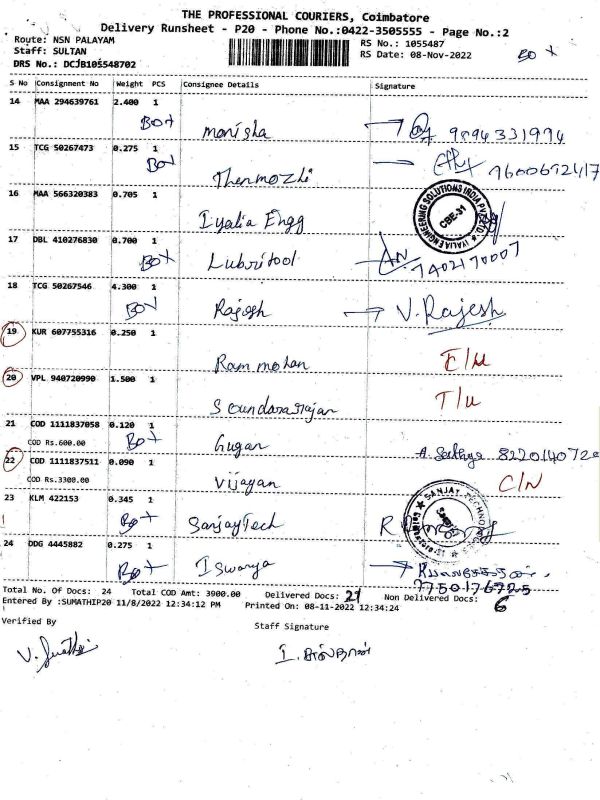 THE PROFESSIONAL COURIERS, Coimbatore
Delivery Runsheet - P20 - Phone No.:0422-3505555 - Page No.:2
Route: NSN PALAYAM
RS No.: 1055487
Staff: SULTAN
RS Date: 08-Nov-2022
Box
DRS No.: DCJB105548702
S No Consignment No Weight PCS Consignee Details Signature
14 MAA 294639761 2.400 1
Box monisha 9894331994
15 TCG 50267473 0.275 1
Box Thenmozhi
16 MAA 566320383 0.705 1
Iyalia Engg
IYALIA ENGINEERING SOLUTIONS INDIA PVT LTD CBE-31
17 DBL 410276830 0.700 1
Box Lubritool 7402170007
18 TCG 50267546 4.300 1
Box Rajesh V. Rajesh
19 KUR 607755316 0.250 1
Ram mohan
20 VPL 940720990 1.500 1
Soundararajan T/U
21 COD 1111837058 0.120 1
COD Rs.600.00 Box Gugan A. Sathya
22 COD 1111837511 0.090 1
COD Rs.3300.00 Vijayan C/N
23 KLM 422153 0.345 1
Box Sanjay Tech
SANJAY TECHNO
24 DDG 4445882 0.275 1
Box Iswarya
7750176725
Total No. Of Docs: 24 Total COD Amt: 3900.00 Delivered Docs: 21 Non Delivered Docs: 6
Entered By :SUMATHIP20 11/8/2022 12:34:12 PM Printed On: 08-11-2022 12:34:24
Verified By Staff Signature